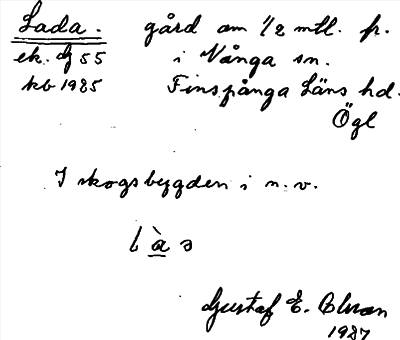 Lada. gård om 1/2 mtl. fr.
ek. bl 55 i Vånga sn.
kb 1925 Finspånga Läns hd.
Ögl
I skogsbygden i n.v.
l à a
Gustaf E.
1927